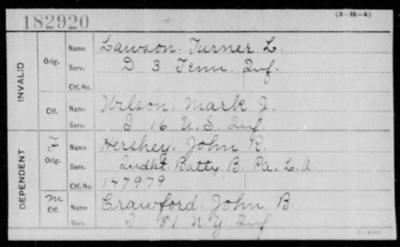 182920
(3-H-4)
INVALID
Orig. Name Lawson. Turner L.
Serv. D 3 Tenn. Inf.
Ctf. No.
Ctf. Name Wilson. Mark J.
Serv. I 16 U.S. Inf
DEPENDENT
F Orig. Name Hershey. John R.
Serv. Indpt. Batty B. Pa. L. A.
Ctf. No. 177979
M Ctf. Name Crawford. John B
Serv. I 81 N.Y. Inf